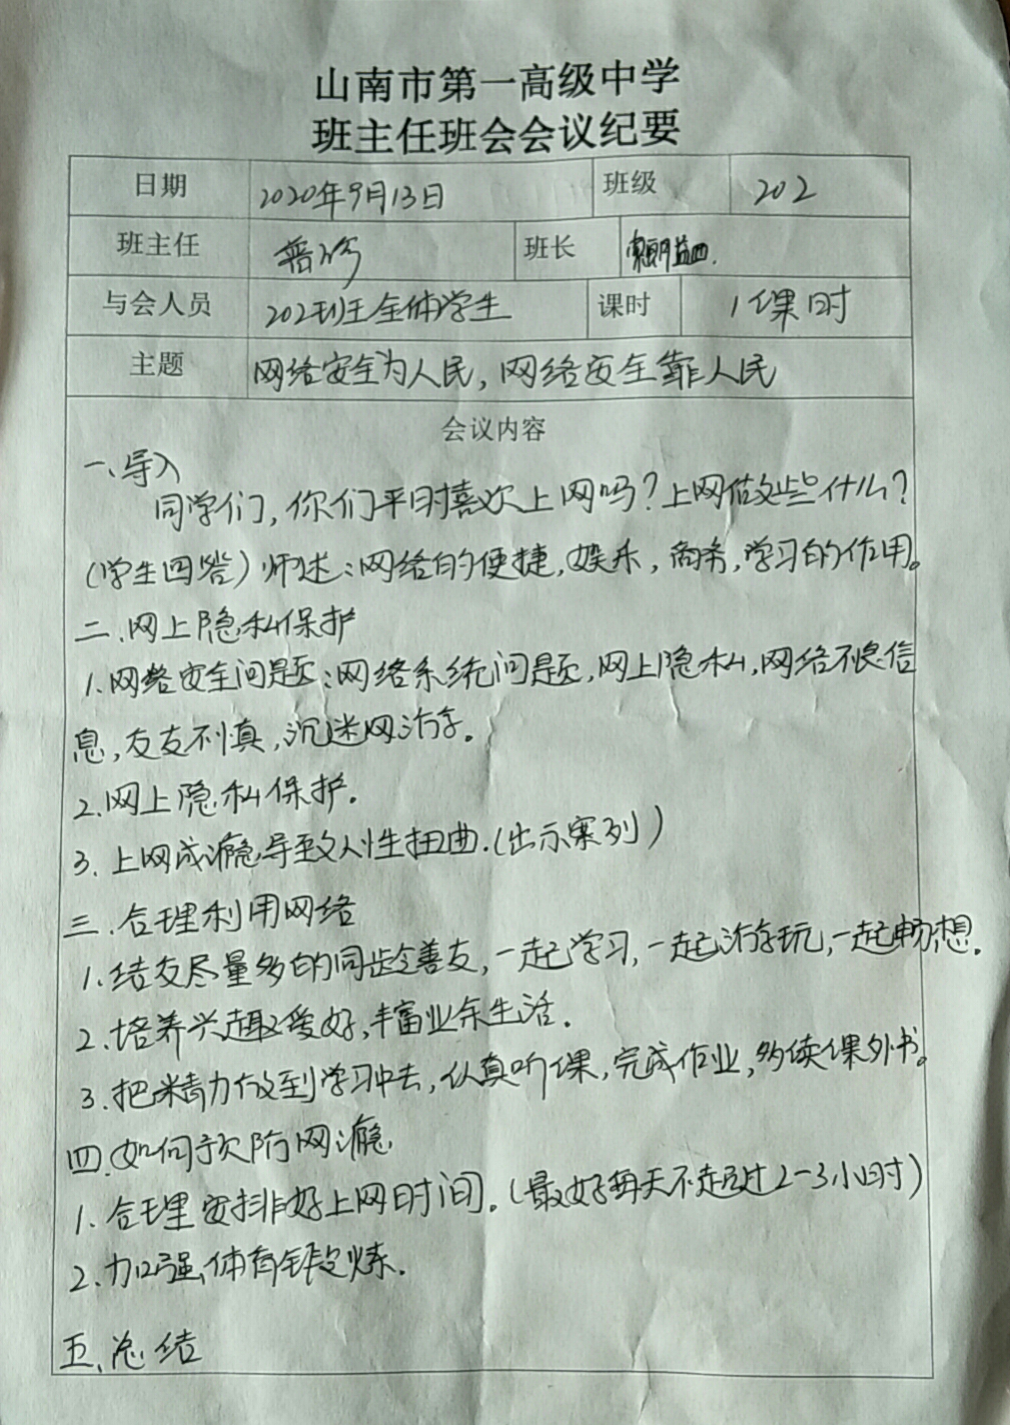 山南市第一高级中学
班主任班会会议纪要
日期 2020年9月13日 班级 202
班主任 普珍 班长
与会人员 202班全体学生 课时 1课时
主题 网络安全为人民,网络安全靠人民
会议内容
一、导入
同学们,你们平时喜欢上网吗?上网做些什么?
(学生回答)师述:网络的便捷,娱乐,商务,学习的作用。
二、网上隐私保护
1、网络安全问题:网络系统问题,网上隐私,网络不良信
息,友友不真,沉迷网游。
2、网上隐私保护.
3、上网成瘾导致人性扭曲.(出示案列)
三、合理利用网络
1、结友尽量多的同龄善友,一起学习,一起游玩,一起畅想.
2、培养兴趣爱好,丰富业余生活.
3、把精力放到学习中去,认真听课,完成作业,多读课外书。
四、如何预防网瘾
1、合理安排好上网时间.(最好每天不超过2-3小时)
2、加强体育锻炼.
五、总结